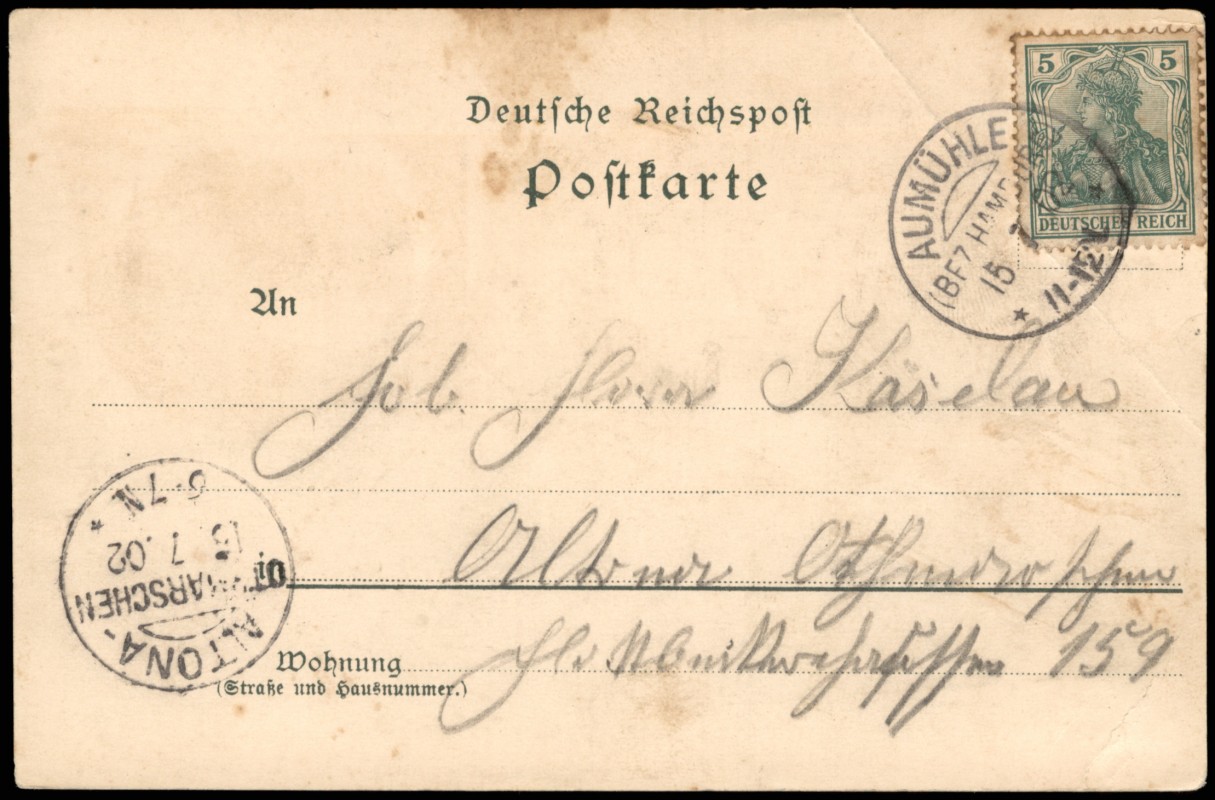 Deutsche Reichspost
Postkarte
5 5
DEUTSCHES REICH
AUMÜHLE
(BEZ. HAMBURG)
15 7 02
11-12
An
Herrn Käselau
in Altona Othmarschen
Wohnung 159
(Straße und Hausnummer.)
ALTONA-
OTHMARSCHEN
15 7.02
6-7N